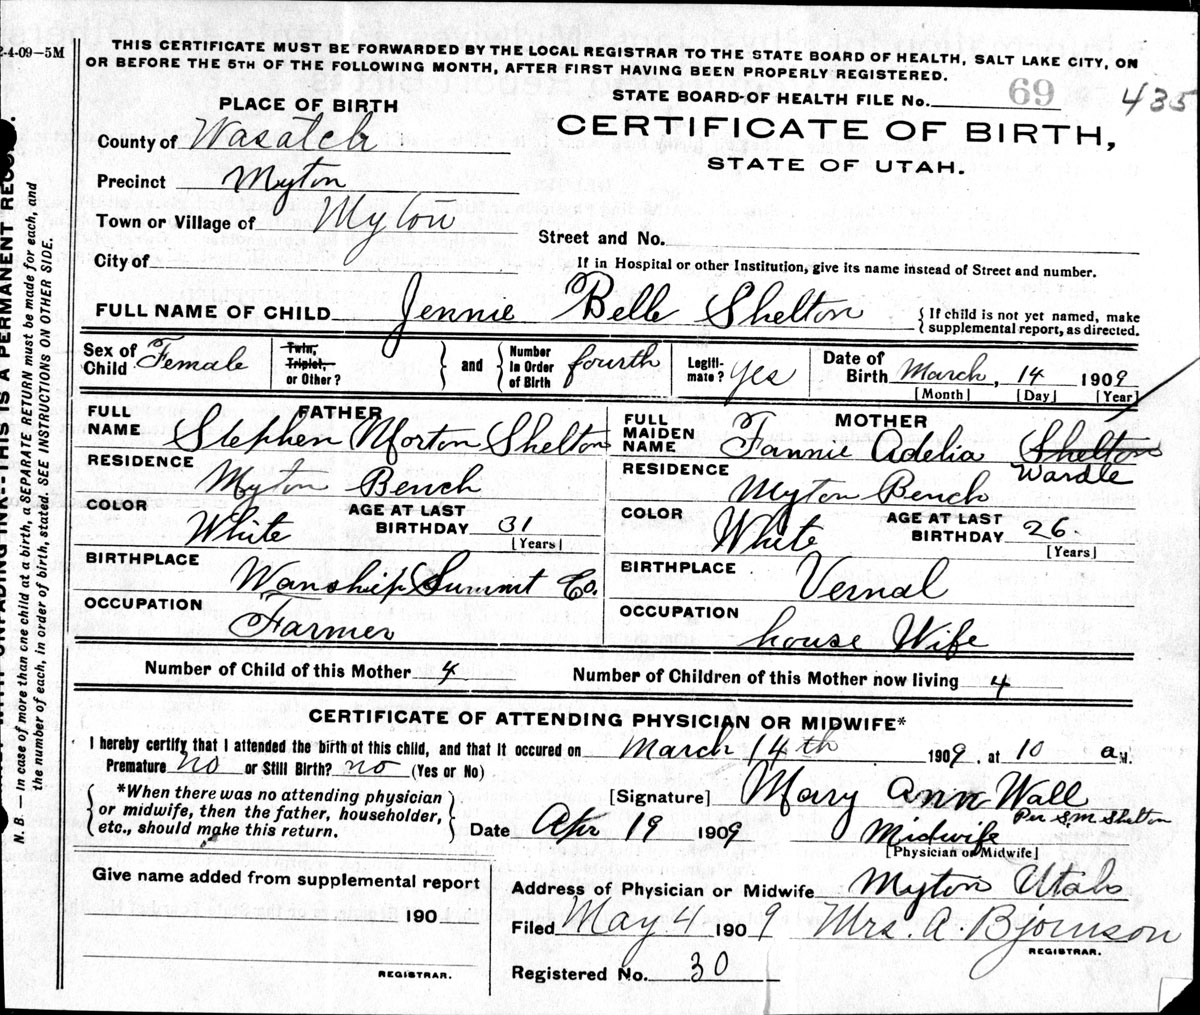 2-4-09—5M
THIS CERTIFICATE MUST BE FORWARDED BY THE LOCAL REGISTRAR TO THE STATE BOARD OF HEALTH, SALT LAKE CITY, ON
OR BEFORE THE 5TH OF THE FOLLOWING MONTH, AFTER FIRST HAVING BEEN PROPERLY REGISTERED.
STATE BOARD OF HEALTH FILE No. 69 435
PLACE OF BIRTH
CERTIFICATE OF BIRTH,
STATE OF UTAH.
County of Wasatch
Precinct Myton
Town or Village of Myton
Street and No.
City of
If in Hospital or other Institution, give its name instead of Street and number.
FULL NAME OF CHILD Jennie Belle Shelton
{ If child is not yet named, make
supplemental report, as directed.
Sex of Child Female
Twin, Triplet, or Other?
} and { Number In Order of Birth fourth
Legiti-mate? yes
Date of Birth March, 14 1909
[Month] [Day] [Year]
FATHER
FULL NAME Stephen Morton Shelton
RESIDENCE Myton Bench
COLOR White
AGE AT LAST BIRTHDAY 31
[Years]
BIRTHPLACE Wanship Summit Co.
OCCUPATION Farmer
MOTHER
FULL MAIDEN NAME Fannie Adelia Shelton
Wardle
RESIDENCE Myton Bench
COLOR White
AGE AT LAST BIRTHDAY 26.
[Years]
BIRTHPLACE Vernal
OCCUPATION house Wife
Number of Child of this Mother 4
Number of Children of this Mother now living 4
CERTIFICATE OF ATTENDING PHYSICIAN OR MIDWIFE*
I hereby certify that I attended the birth of this child, and that it occured on March 14th 1909, at 10 a M.
Premature no or Still Birth? no (Yes or No)
{ *When there was no attending physician
or midwife, then the father, householder,
etc., should make this return. }
[Signature] Mary Ann Wall
Per S.M Shelton
Date Apr 19 1909
Midwife
[Physician or Midwife]
Give name added from supplemental report
190
REGISTRAR.
Address of Physician or Midwife Myton Utah
Filed May 4 1909 Mrs. A. Bjornson
REGISTRAR.
Registered No. 30
N. B. — In case of more than one child at a birth, a SEPARATE RETURN must be made for each, and
the number of each, in order of birth, stated. SEE INSTRUCTIONS ON OTHER SIDE.
UNFADING INK--THIS IS A PERMANENT